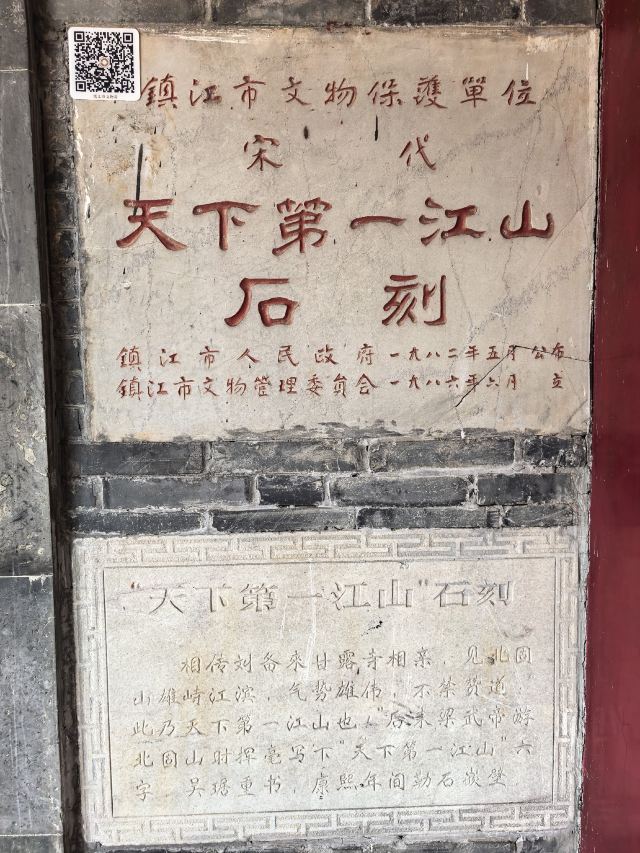 鎮江市文物保護單位
宋代
天下第一江山
石刻
鎮江市人民政府一九八二年五月公布
鎮江市文物管理委員会一九八六年六月 立
"天下第一江山"石刻
相传刘备来甘露寺相亲，见北固
山雄峙江滨，气势雄伟，不禁赞道：
此乃天下第一江山也！"后来梁武帝游
北固山时挥毫写下"天下第一江山"六
字，吴琚重书，康熙年间勒石嵌壁